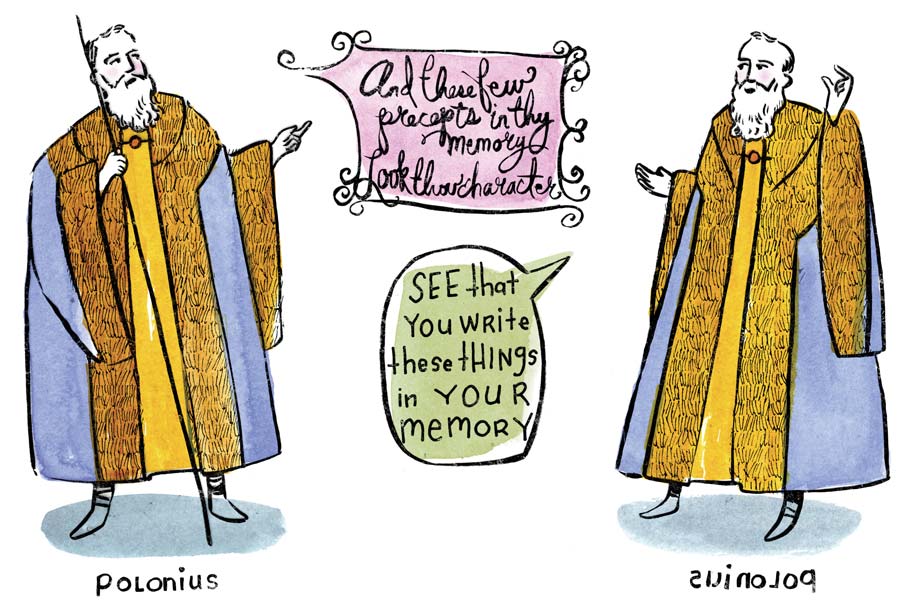 And these few
precepts in thy
memory
Look thou character
SEE that
YOU WRITE
these tHINGS
in YOUR
MEMORY
POLONIUS
POLONIUS